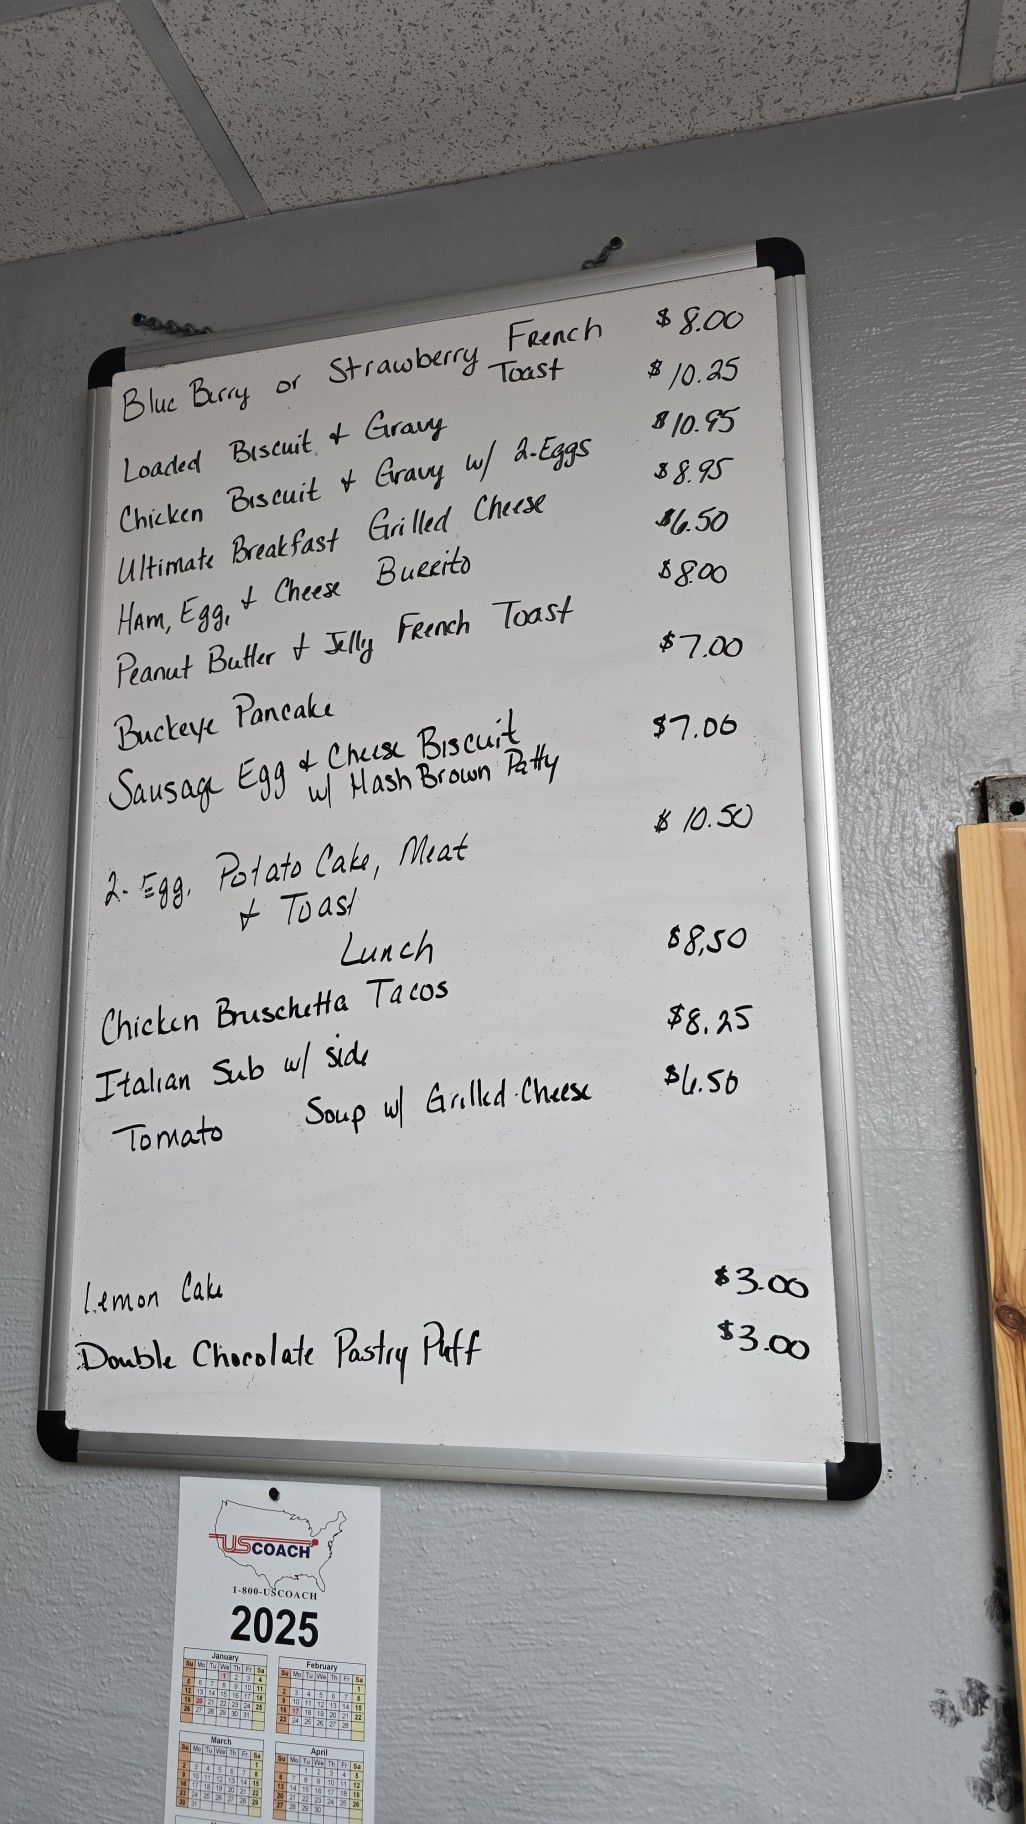 Blue Berry or Strawberry French Toast $8.00
Loaded Biscuit & Gravy $10.25
Chicken Biscuit & Gravy w/ 2-Eggs $10.95
Ultimate Breakfast Grilled Cheese $8.95
Ham, Egg, & Cheese Burrito $6.50
Peanut Butter & Jelly French Toast $8.00
Buckeye Pancake $7.00
Sausage Egg & Cheese Biscuit $7.00
w/ Hash Brown Patty
2-Egg, Potato Cake, Meat $10.50
& Toast
Lunch
Chicken Bruschetta Tacos $8,50
Italian Sub w/ side $8.25
Tomato Soup w/ Grilled Cheese $6.50
Lemon Cake $3.00
Double Chocolate Pastry Puff $3.00
USCOACH
1-800-USCOACH
2025
January February
Su Mo Tu We Th Fr Sa Su Mo Tu We Th Fr Sa
March April
Su Mo Tu We Th Fr Sa Su Mo Tu We Th Fr Sa